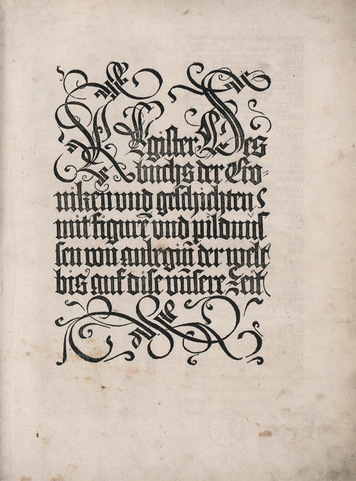 Register Des
buchs der Cro-
niken und geschichten
mit figurẽ und pildnuſ-
ſen von anbegiñ der welt
bis auf diſe uñſere Zeit